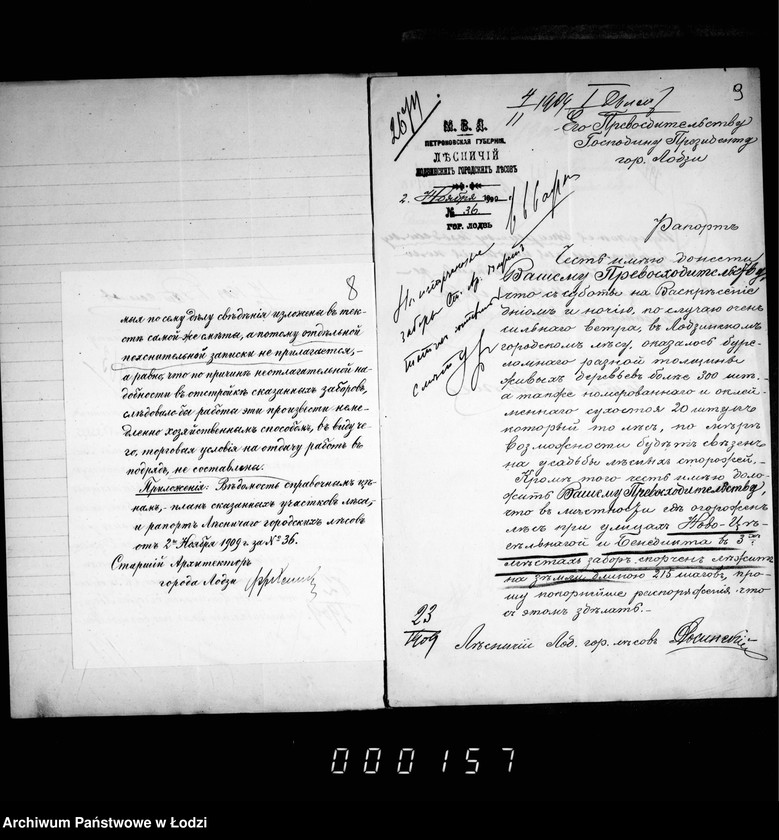 8
мыя по сему дѣлу свѣдѣнія изложены въ тек-
стъ самой же смѣты, а потому отдѣльной
пояснительной записки не прилагается,-
а равно, что по причинѣ неотлагательной на-
добности въ отстройкѣ сказанныхъ заборовъ,
слѣдовало бы работы эти произвести неме-
дленно хозяйственнымъ способомъ, въ виду че-
го, торговыя условія на отдачу работъ въ
подрядъ, не составлены.
Приложенія: Вѣдомость справочнымъ цѣ-
намъ,- планъ сказанныхъ участковъ лѣса,-
и рапортъ Лѣсничаго городскихъ лѣсовъ
отъ 2го Ноября 1909 г. за № 36.
Старшій Архитекторъ
города Лодзи
9
2677
4/11 1909 I
М. В. Д.
ПЕТРОКОВСКАЯ ГУБЕРНІЯ.
ЛѢСНИЧІЙ
ЛОДЗИНСКИХЪ ГОРОДСКИХЪ ЛѢСОВЪ
2. Ноября 190 г.
№ 36
ГОР. ЛОДЗЬ.
Его Превосходительству
Господину Президенту
гор. Лодзи
Рапортъ
Честь имѣю донести
Вашему Превосходительству,
что съ субботы на Воскрѣсеніе
днёмъ и ночію, по случаю очень
сильнаго вѣтра, въ Лодзинскомъ
городскомъ лѣсу, оказалось буре-
ломнаго разной толщины
живыхъ деревьевъ болѣе 300 шт.
а также номерованнаго и оклей-
меннаго сухостоя 20 штукъ
который то лѣсъ, по мѣрѣ
возможности будетъ свѣзенъ
на усадьбы лѣсныхъ сторожей.-
Кромѣ того честь имѣю доло-
жить Вашему Превосходительству,
что въ мѣстности гдѣ огорожен
лѣсъ при улицахъ Ново-Це-
гельнягой и Бенедикта въ 3хъ
мѣстахъ заборъ спорченъ лѣжитъ
на зѣмли длиною 215 шаговъ, про-
шу покорнѣйше распоряженія что
съ этомъ здѣлать.-
23
1909
Лѣсничій Лод. гор. лѣсовъ
000157
Archiwum Państwowe w Łodzi